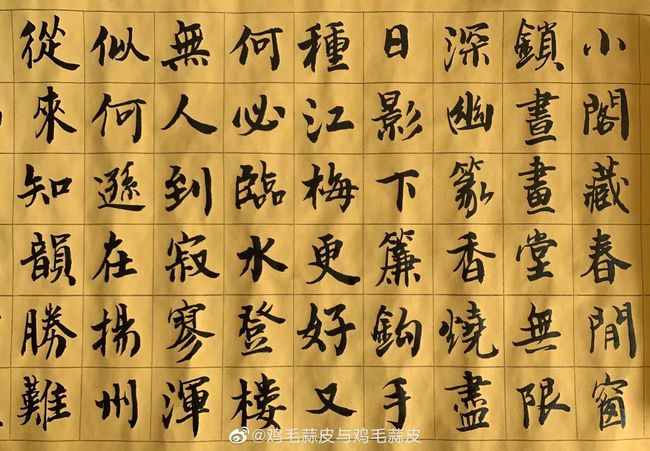 小閣藏春閒窗
鎖晝畫堂無限
深幽篆香燒盡
日影下簾鉤手
種江梅更好又
何必臨水登樓
無人到寂寥渾
似何遜在揚州
從來知韻勝難
@鸡毛蒜皮与鸡毛蒜皮